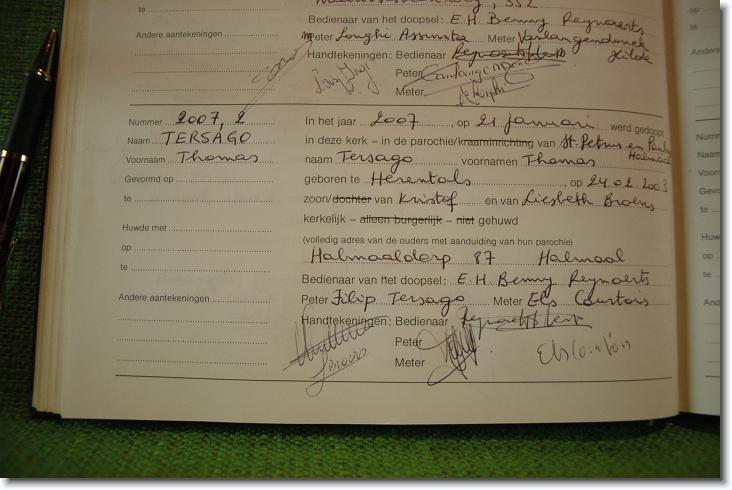 332
te
Bedienaar van het doopsel: E.H. Benny Reynaerts
Andere aantekeningen
Peter Longhi Assunta Meter Vanlangendonck
Handtekeningen: Bedienaar Hilde
Peter
Meter
Nummer 2007, 2
Naam TERSAGO
Voornaam Thomas
Gevormd op
te
Huwde met
op
te
Andere aantekeningen
In het jaar 2007, op 21 Januari werd gedoopt
in deze kerk – in de parochie/kraaminrichting van St. Petrus en Paulus
Halmaal
naam Tersago voornamen Thomas
geboren te Herentals, op 24.02.2003
zoon/dochter van Kristof en van Liesbeth Broens
kerkelijk – alleen burgerlijk – niet gehuwd
(volledig adres van de ouders met aanduiding van hun parochie)
Halmaaldorp 87 Halmaal
Bedienaar van het doopsel: E.H. Benny Reynaerts
Peter Filip Tersago Meter Els Courtois
Handtekeningen: Bedienaar
Peter
Meter
Broens
Els Courtois
Andere
Numm
Naam
Voorn
Gevo
te
Huw
op
te
And